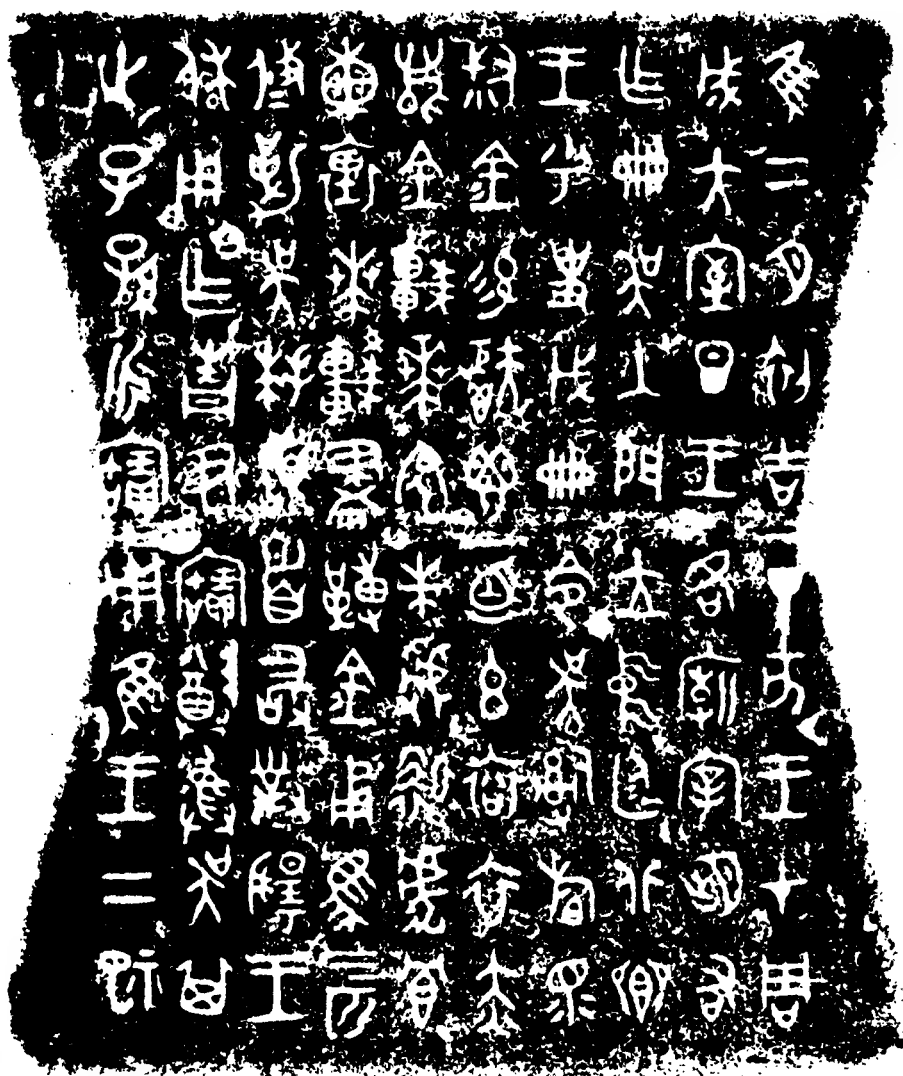 隹二月初吉丁亥王才周
成大室旦王各廟宰朏右
乍冊吳入門立中廷北鄉
王乎史戊冊令吳𤔲旃眔
叔金易秬鬯一卣玄袞衣赤
舄金車𠦪朱虢靳虎冟
熏裏𠦪較畫𨍰金甬馬四匹
攸勒吳拜稽首敢對揚王
休用乍青尹寶尊彝吳其
世子孫永寶用隹王二祀